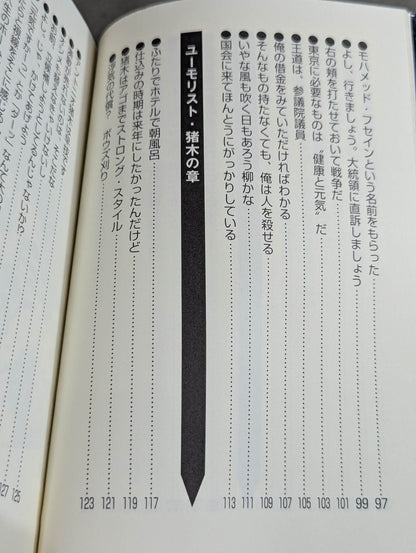 ●モハメッド・フセインという名前をもらった……97
●よし、行きましょう。大統領に直訴しましょう……99
●右の頬を打たせておいて戦争だ……101
●東京に必要なものは〝健康と元気〟だ……103
●王道は、参議院議員……105
●俺の借金をみていただければわかる……107
●そんなもの持たなくても、俺は人を殺せる……109
●いやな風も吹く日もあろう柳かな……111
●国会に来てほんとうにがっかりしている……113
ユーモリスト・猪木の章
●ふたりでホテルで朝風呂……117
●仕込みの時期は来年にしたかったんだけど……119
●猪木はアゴまでストロング・スタイル……121
●元気の代償？ ボウズ刈り……123
125
127